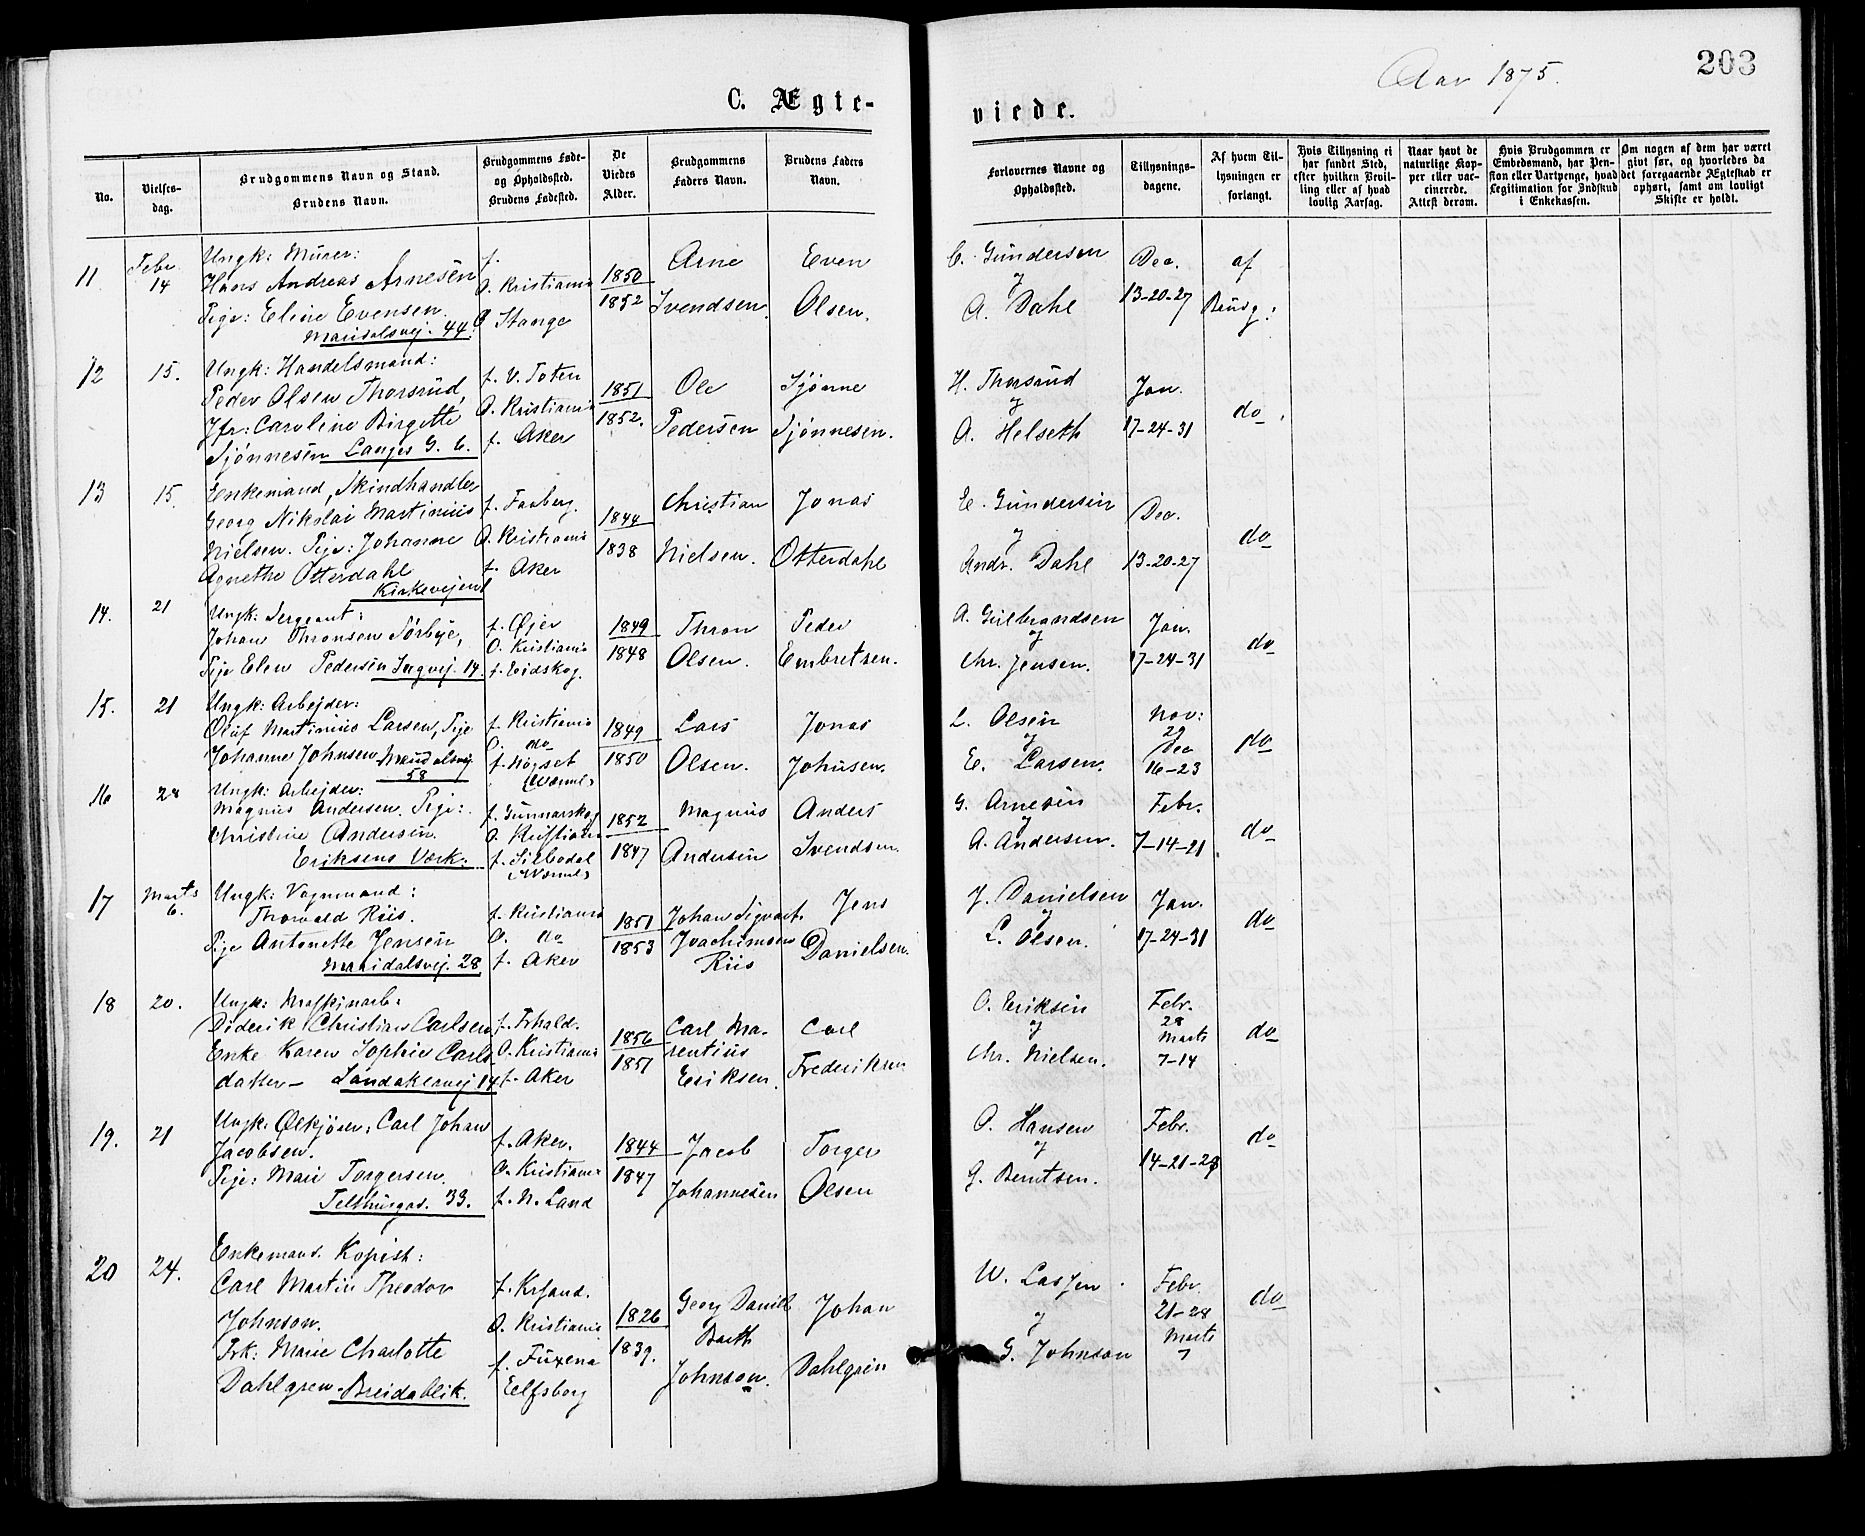 Aar 1875.
203
C. Ægte-
viede.
No.
Vielses-
dag.
Brudgommens Navn og Stand.
Brudens Navn.
Brudgommens Føde-
og Opholdssted.
Brudens Fødested.
De
Viedes
Alder.
Brudgommens
Faders Navn.
Brudens Faders
Navn.
Forlovernes Navne og
Opholdssted.
Tillysnings-
dagene.
Af hvem Til-
lysningen er
forlangt.
Hvis Tillysning ei
har fundet Sted,
efter hvilken Bevil-
ling eller af hvad
lovlig Aarsag.
Naar havt de
naturlige Kop-
per eller vac-
cinerede.
Attest derom.
Hvis Brudgommen er
Embedsmand, har Pen-
sion eller Vartpenge, hvad
Legitimation for Indskud
i Enkekassen.
Om nogen af dem har været
givt før, og hvorledes da
det foregaaende Ægteskab er
ophørt, samt om lovligt
Skifte er holdt.
11
Febr.
14
Ungk: Murer:
Hans Andreas Arnesen
Pige: Eline Evensen.
Maridalsvej. 44.
f.
O. Kristiania
O Stange
1850
1852
Arne
Svendsen.
Even
Olsen.
C. Gundersen
og
A. Dahl
Dec.
13-20-27
af
Brudg:
12
15.
Ungk: Handelsmand:
Peder Olsen Thorsrud,
Jfr: Caroline Birgitte
Sjønnesen Langes G. 6.
f. V. Toten
O. Kristiania
f. Aker
1851
1852.
Ole
Pedersen
Sjønne
Sjønnesen.
H. Thorsrud
og
A. Helseth
Jan.
17-24-31
do
13
15.
Enkemand, Skindhandler
Georg Nikolai Martinius
Nielsen. Pige: Johanne
Agnethe Otterdahl
Kirkevejen 1
f. Faaberg.
O. Kristiania
f. Aker
1844
1838
Christian
Nielsen.
Jonas
Otterdahl
E. Gundersen
og
Andr. Dahl
Dec.
13-20-27
do
14.
21
Ungk: Sergeant:
Johan Thronsen Sørbye,
Pige Elen Pedersen 14.
f. Øjer
O. Kristiania
f. Eidskog.
1849
1848
Thron
Olsen.
Peder
Embretsen.
A. Gulbrandsen
og
Chr. Jensen.
Jan.
17-24-31
do
15.
21
Ungk: Arbejder:
Oluf Martinius Larsen, Pige
Johanne Johnsen Maridalsvej.
58
f. Kristiania
O. do
f.
1849
1850
Lars
Olsen.
Jonas
Johnsen.
L. Olsen
og
E. Larsen.
Nov:
29
Dec
16-23
do
16
28
Ungk: Arbejder:
Magnus Andersen. Pige:
Christine Andersen.
Eriksens Værk.
f. Gunnarskog
O. Kristiania
f. Silbodal
1852
1847
Magnus
Andersen
Anders
Svendsen.
G. Arnesen
og
A. Andersen.
Febr.
7-14-21
do
17
Marts
6.
Ungk: Vognmand:
Thorvald Riis.
Pige Antonette Jensen
Maridalsvej. 28
f. Kristiania
O. do
f. Aker
1851
1853
Johan Sigvart
Joachimsen
Riis
Jens
Danielsen.
J. Danielsen
og
L. Olsen.
Jan.
17-24-31
do
18
20.
Ungk: Maskinarb:
Diderik Christian Carlsen
Enke Karen Sophie Carls
datter- Sandakervej 14
f. Frhald.
O. Kristiania
f. Aker
1856
1851
Carl Ma-
rentius
Eriksen.
Carl
Frederiksen
O. Eriksen
og
Chr. Nielsen.
Febr.
28
Marts
7-14
do
19.
21
Ungk: Ølkjører: Carl Johan
Jacobsen.
Pige: Mari Torgersen.
Telthusgad. 33.
f. Aker.
O. Kristiania
f. N. Land
1844
1847
Jacob
Johannesen
Torger
Olsen
O. Hansen
og
G. Berntsen.
Febr.
14-21-28
do
20
24.
Enkemand. Kopist:
Carl Martin Theodor
Johnson.
Frk: Marie Charlotte
Dahlgren. Breidablik.
f. Krsand.
O. Kristiania
f. Fuxerna
Elfsborg
1826
1839.
Georg Daniel
Barth
Johnson.
Johan
Dahlgren
W. Lassen
og
G. Johnson
Febr.
21-28
Marts
7
do